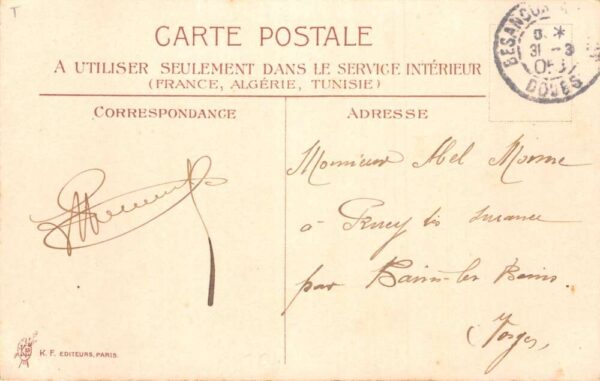 T
CARTE POSTALE
A UTILISER SEULEMENT DANS LE SERVICE INTÉRIEUR
(FRANCE, ALGÉRIE, TUNISIE)
BESANÇON
31 - 3
05
DOUBS
CORRESPONDANCE
ADRESSE
Monsieur Abel
à
par Bains-les Bains
Vosges
K. F. EDITEURS, PARIS